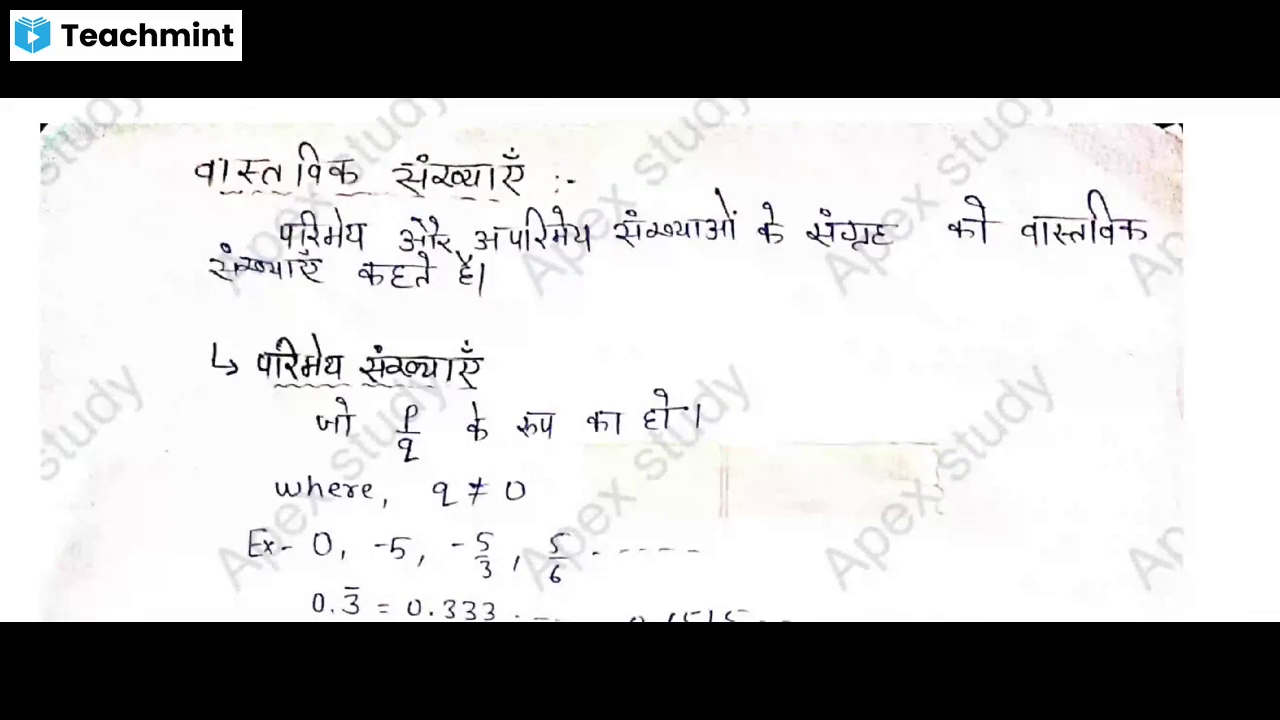 Teachmint
वास्तविक संख्याएँ :-
परिमेय और अपरिमेय संख्याओं के संग्रह को वास्तविक
संख्याएँ कहते हैं।
↳ परिमेय संख्याएँ
जो p/q के रूप का हो।
where, q ≠ 0
Ex- 0, -5, -5/3, 5/6 ------
0.3̅ = 0.333 . --
Apex study